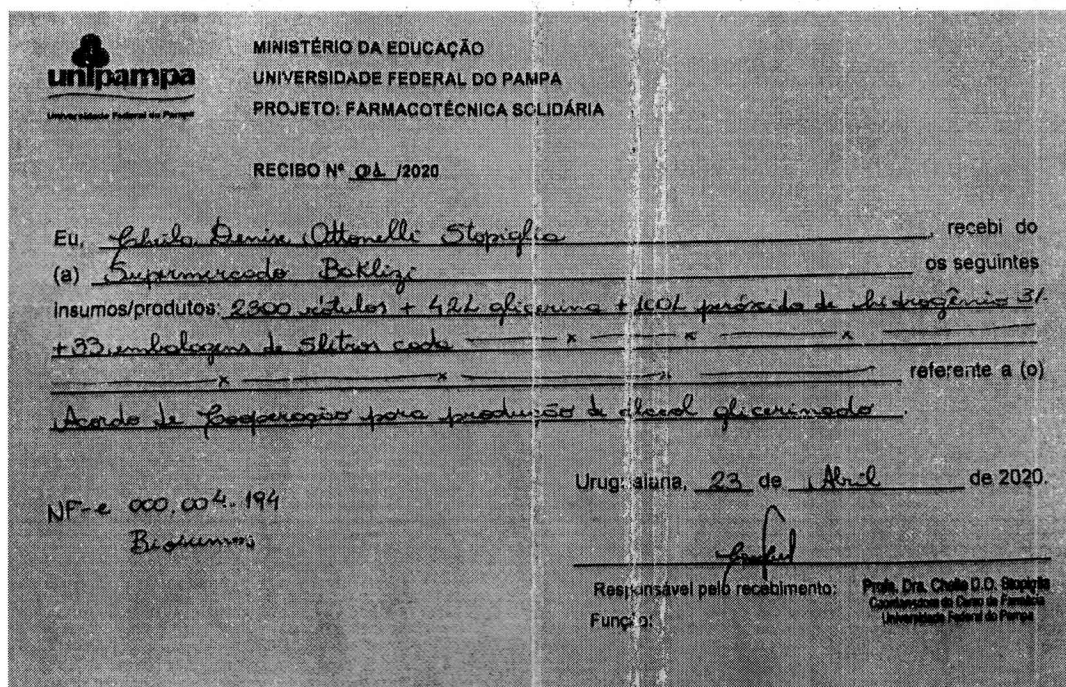 unipampa
Universidade Federal do Pampa
MINISTÉRIO DA EDUCAÇÃO
UNIVERSIDADE FEDERAL DO PAMPA
PROJETO: FARMACOTÉCNICA SOLIDÁRIA
RECIBO Nº 01 /2020
Eu, Cheila Denise Ottonelli Stopiglia, recebi do
(a) Supermercado Baklizi os seguintes
insumos/produtos: 2300 rótulos + 42L glicerina + 100L peróxido de hidrogênio 3%
+33 embalagens de 5 litros cada x x x x
x x x referente a (o)
Acordo de Cooperação para produção de álcool glicerinado.
Uruguaiana, 23 de Abril de 2020.
NF-e 000.004.194
Bioinsumos
Responsável pelo recebimento: Profa. Dra. Cheila D.O. Stopiglia
Coordenadora do Curso de Farmácia
Universidade Federal do Pampa
Função: